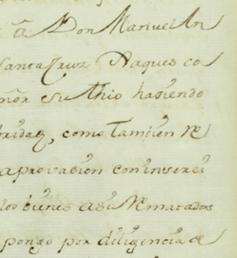 â Don Manuel An
Santa Cruz Vaques co
eñor su thio hasiendo
oridad, como tambien re
aprovasion con inserci
los bienes asi rematados
pongo por diligencia de